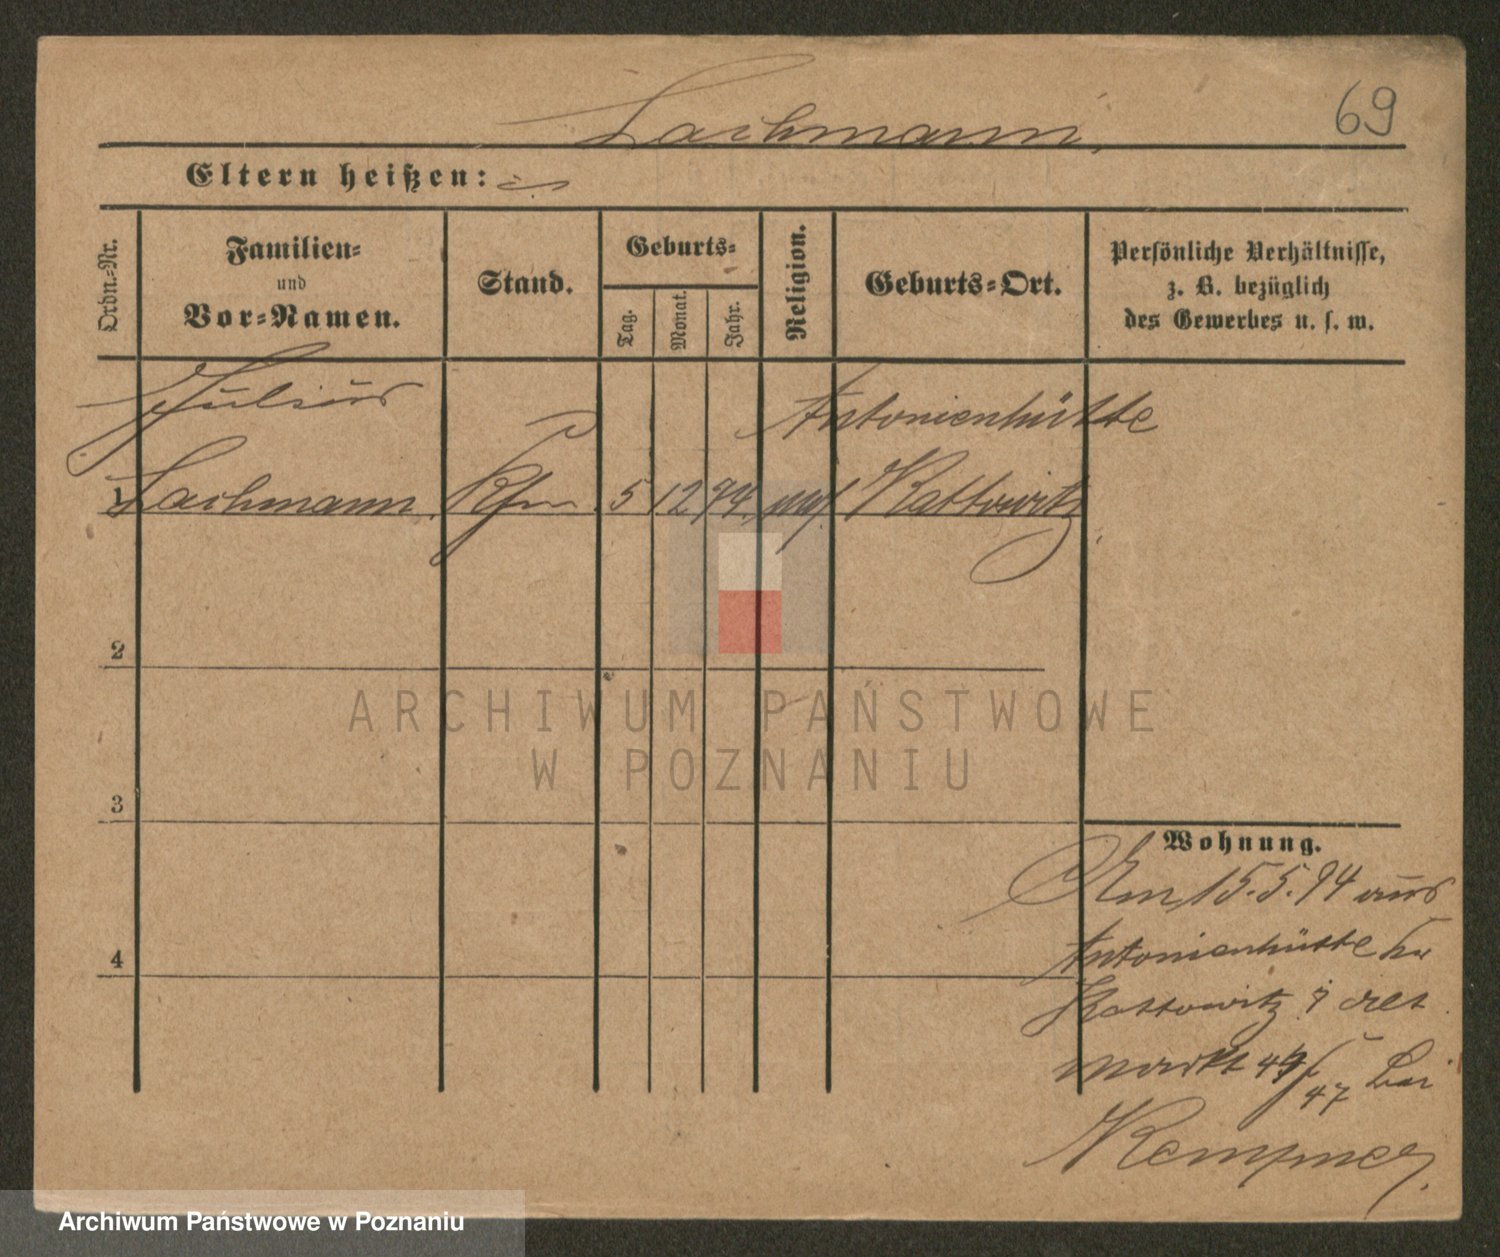 Lachmann.
69
Eltern heißen:
Ordn.-Nr.
Familien-
und
Vor-Namen.
Stand.
Geburts-
Tag.
Monat.
Jahr.
Religion.
Geburts-Ort.
Persönliche Verhältnisse,
z. B. bezüglich
des Gewerbes u. s. w.
Julius
Antonienhütte
1 Lachmann. Kfm 5 12 74 Kattowitz
2
3
4
Wohnung.
Am 15.5.94 aus
Antonienhütte Kr
Kattowitz
markt 47 bei
Kempner.
ARCHIWUM PAŃSTWOWE
W POZNANIU
Archiwum Państwowe w Poznaniu